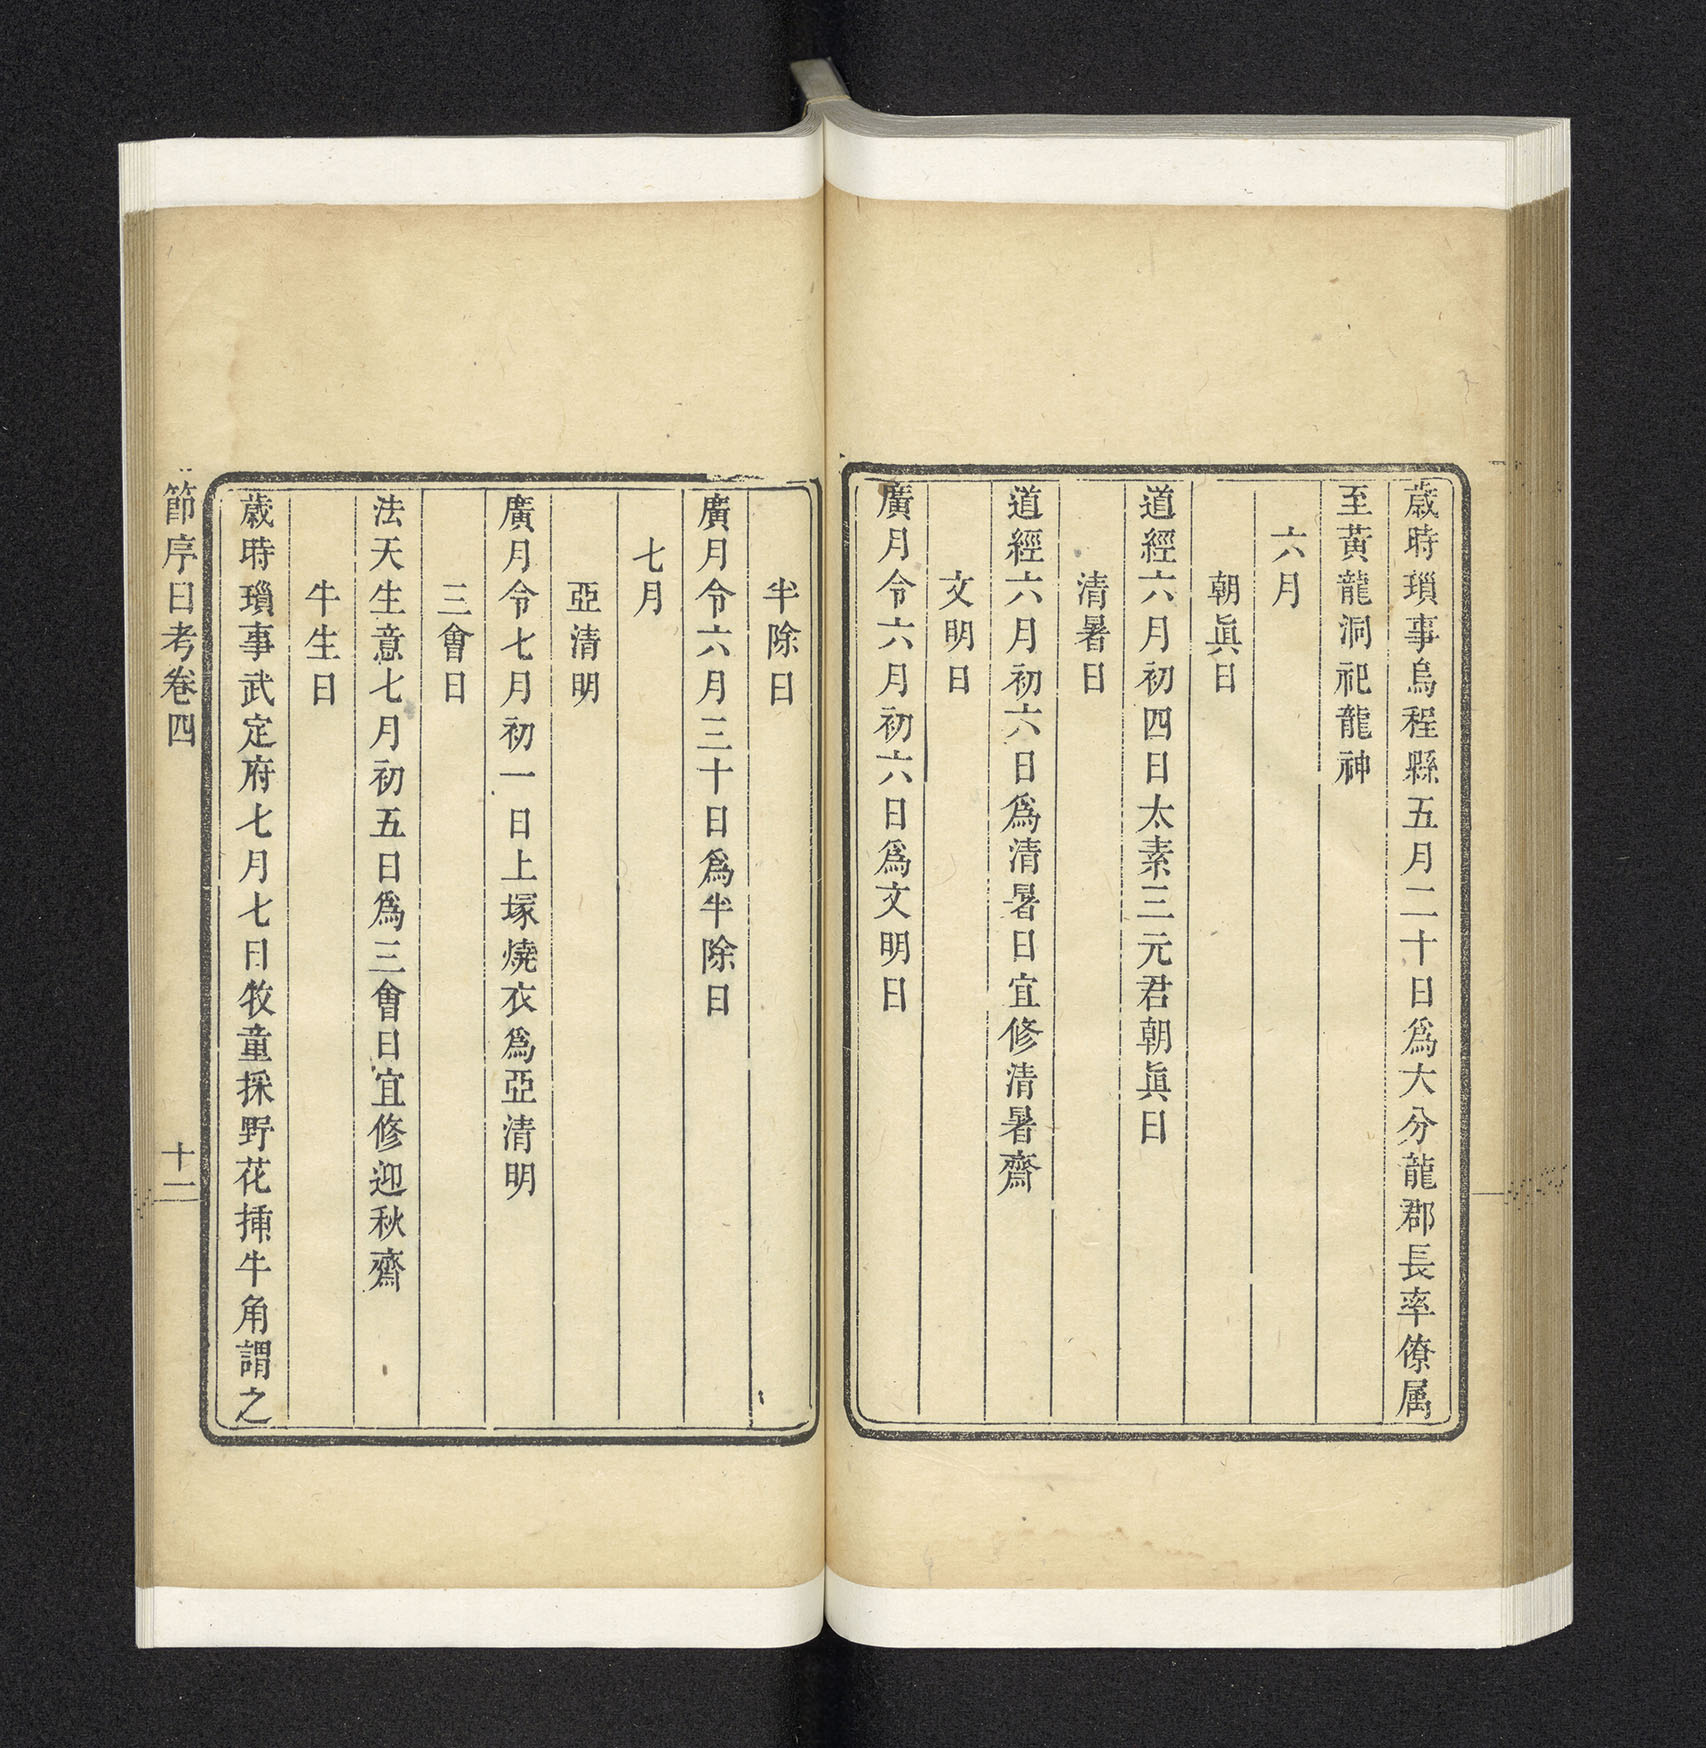 歲時瑣事烏程縣五月二十日爲大分龍郡長率僚属
至黃龍洞祀龍神
六月
朝眞日
道經六月初四日太素三元君朝眞日
清暑日
道經六月初六日爲清暑日宜修清暑齋
文明日
廣月令六月初六日爲文明日
半除日
廣月令六月三十日爲半除日
七月
亞清明
廣月令七月初一日上塚燒衣爲亞清明
三會日
法天生意七月初五日爲三會日宜修迎秋齋
牛生日
歲時瑣事武定府七月七日牧童採野花揷牛角謂之
節序日考卷四
十二